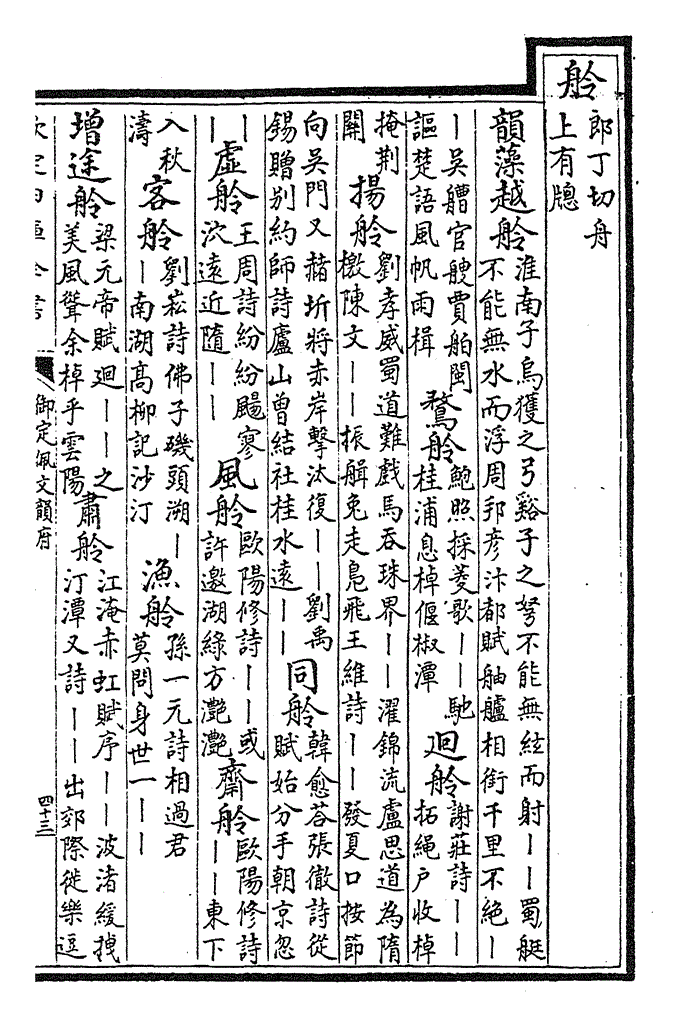 舲郎丁切舟上有牕
韻藻越舲淮南子烏獲之弓谿子之弩不能無絃而射丨丨蜀艇不能無水而浮周邦彥汴都賦舳艫相銜千里不絶丨
丨吳艚官艘賈舶閩謳楚語風帆雨楫鶩舲鮑照採菱歌丨丨馳桂浦息棹偃椒潭迴舲謝莊詩丨丨拓繩户收棹
掩荆關揚舲劉孝威蜀道難戲馬吞珠界丨丨濯錦流盧思道為隋檄陳文丨丨振艥兔走鳧飛王維詩丨丨發夏口按節
向吳門又赭圻將赤岸擊汰復丨丨劉禹錫贈别約師詩廬山曾結社桂水遠丨丨同舲韓愈荅張徹詩從賦始分手朝京忽
丨丨虚舲王周詩紛紛颺寥泬遠近隨丨丨風舲歐陽修詩丨丨或許邀湖綠方灔灔齋舲歐陽修詩丨丨東下
入秋濤客舲劉菘詩佛子磯頭溯丨丨南湖高柳記沙汀漁舲孫一元詩相過君莫問身世一丨丨
增途舲梁元帝賦廻丨丨之美風聲余棹乎雲陽肅舲江淹赤虹賦序丨丨波渚緩拽汀潭又詩丨丨出郊際徙樂逗
御定佩文韻府
四十三